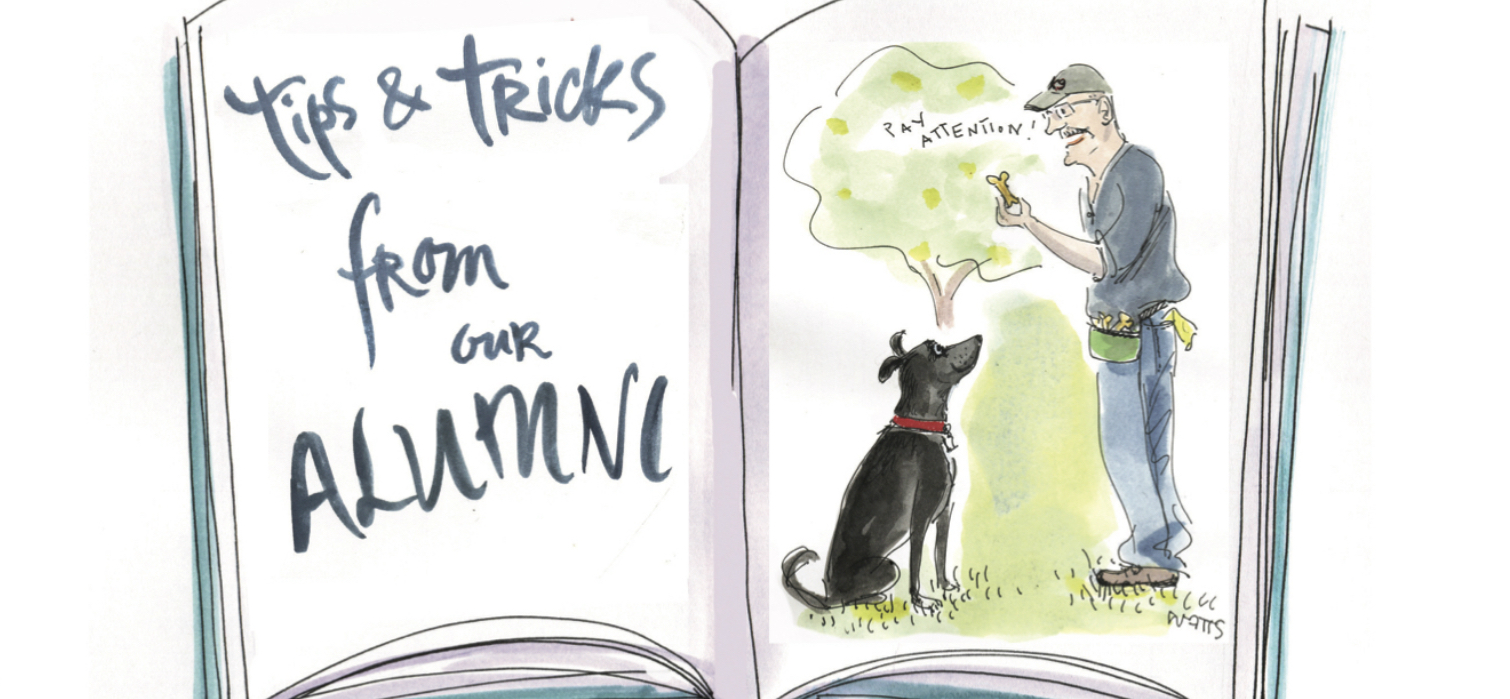 tips & TRicks
fRom
ouR
ALUMNI
PAY
ATTENTION!
WATTS